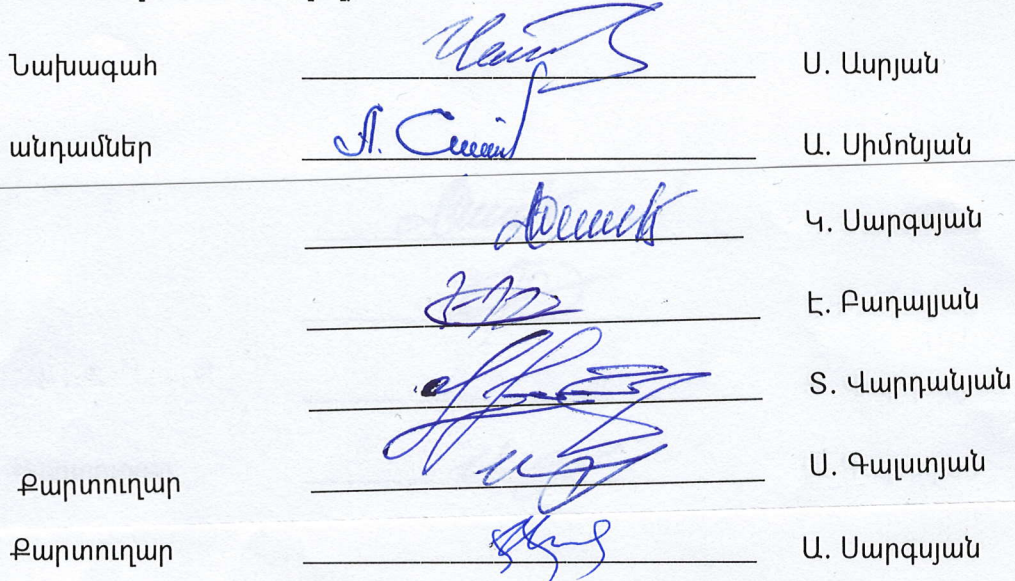 Նախագահ Ս. Ասրյան
անդամներ Ա. Սիմոնյան
Կ. Սարգսյան
Է. Բադալյան
Տ. Վարդանյան
Քարտուղար Ս. Գալստյան
Քարտուղար Ա. Սարգսյան